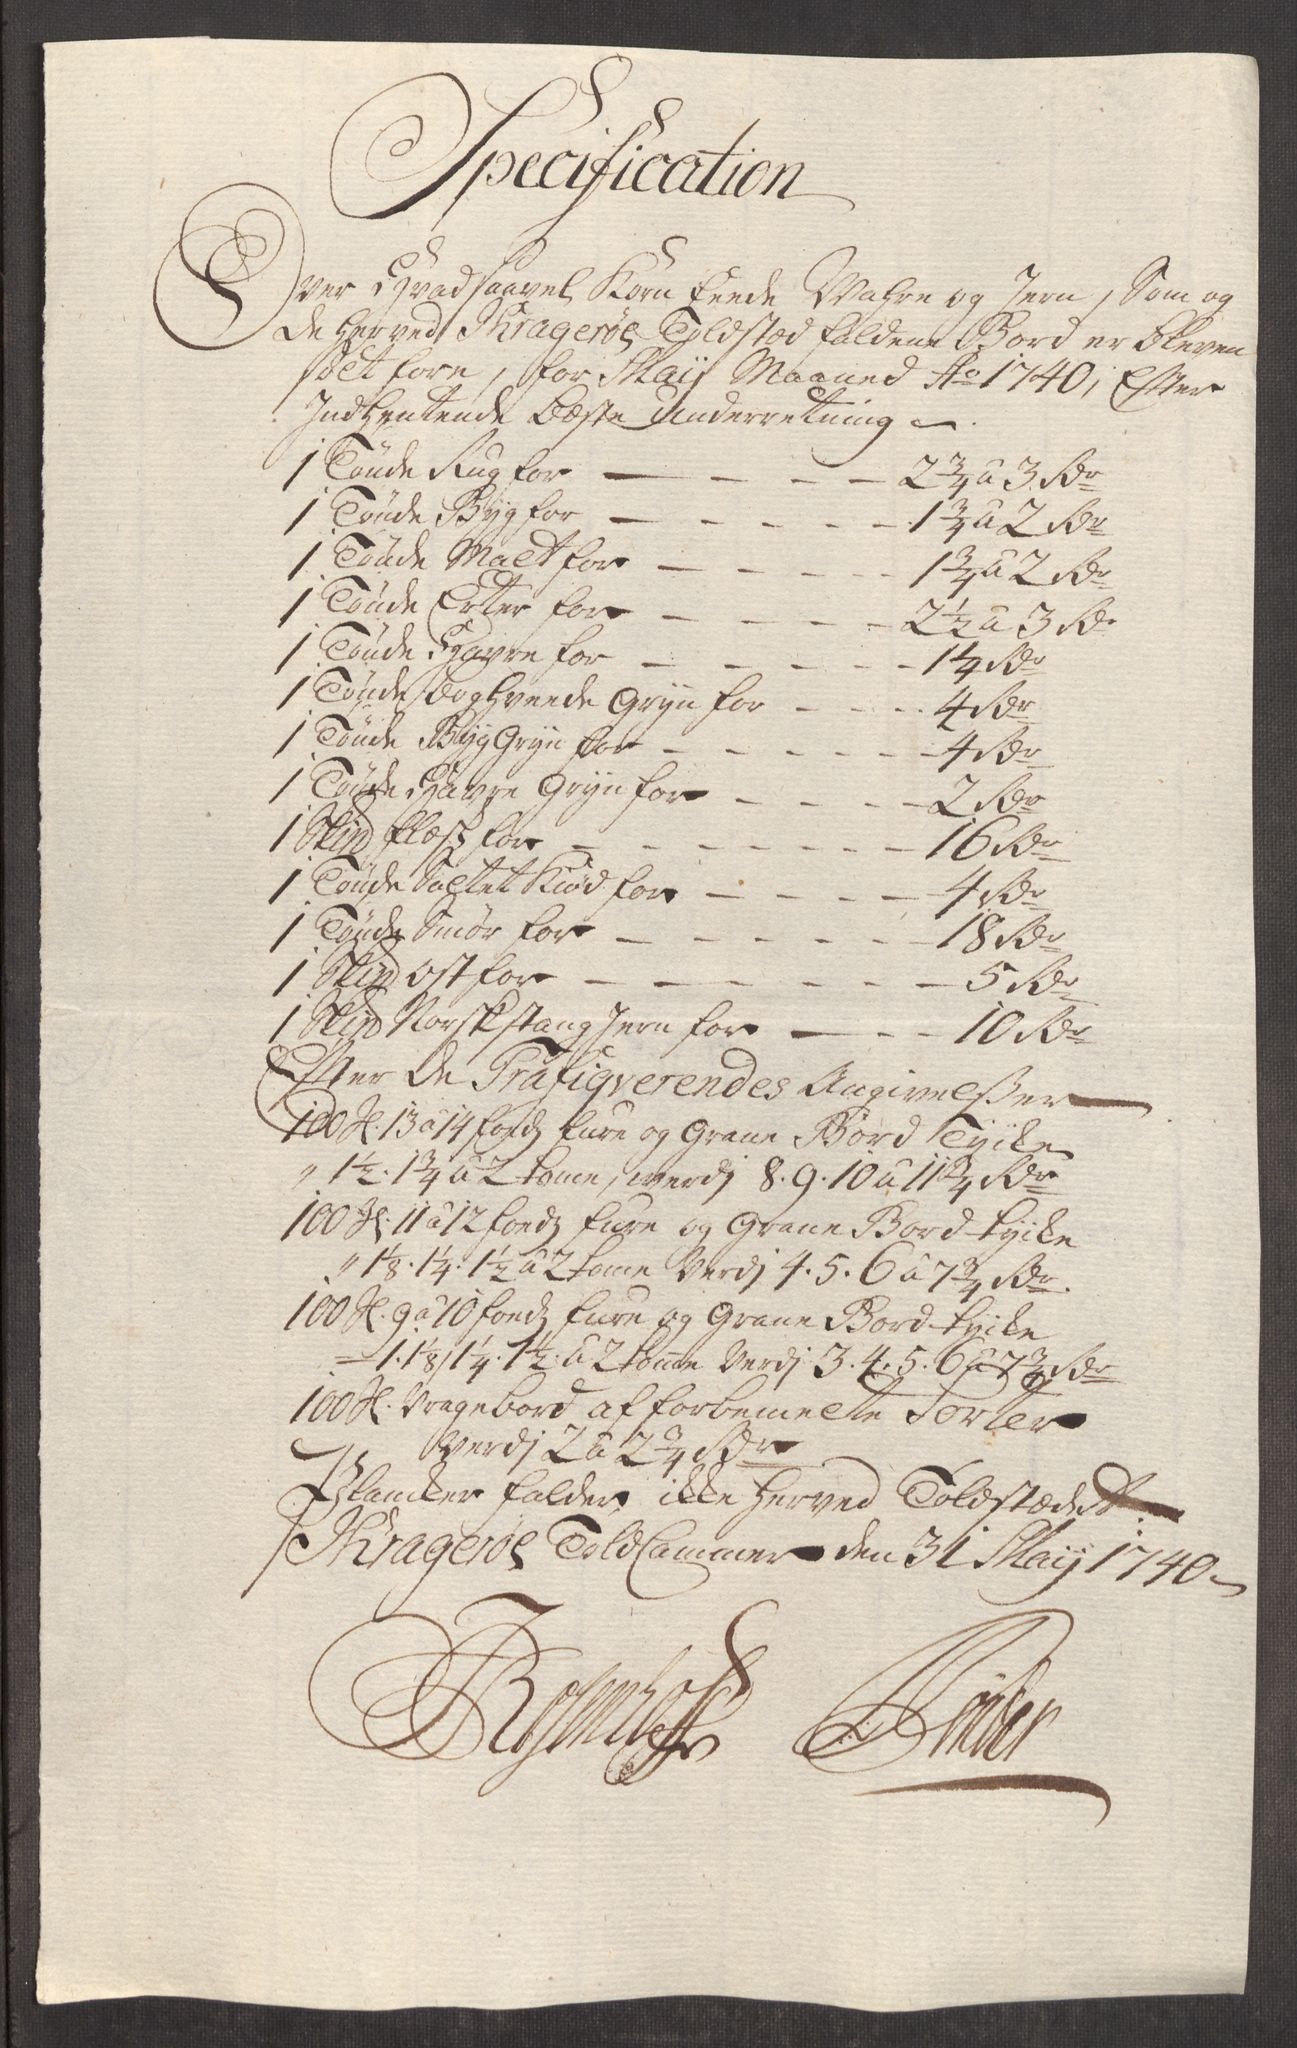 Specification
Over Hvad saavel Korn Feede Wahre og Jern, Som og
de herved Kragerøes Toldsted faldene Bord er bleven
solt fore, for Maij Maaned Ao 1740, Efter
Indhentende beste Underretning
1 Tønde Rug for — — — — — 2 3/4 a 3 Rdr
1 Tønde Byg for — — — — — 1 3/4 a 2 Rdr
1 Tønde Malt for — — — — — 1 3/4 a 2 Rdr
1 Tønde Erter for — — — — — 2 1/2 a 3 Rdr
1 Tønde Havre for — — — — — 1 1/4 Rdr
1 Tønde boghveede Gryn for — — — 4 Rdr
1 Tønde Byg Gryn for — — — — — 4 Rdr
1 Tønde Havre Gryn for — — — — 2 Rdr
1 Skipd flæsk for — — — — — 16 Rdr
1 Tønde Saltet Kiød for — — — — 4 Rdr
1 Tønde Smør for — — — — — 18 Rdr
1 Skipd ost for — — — — — 5 Rdr
1 Skipd Norsk stang Jern for — — — 10 Rdr
Efter de Trafiqverendes Angivelsser
100 St. 13 a 14 foedz fure og Grane Bord Tycke
" 1 1/2. 1 3/4 a 2 tome, werdj 8. 9. 10 a 11 3/4 Rdr
100 St. 11 a 12 foedz fure og Grane Bord tycke
" 1 1/8. 1 1/4. 1 1/2 a 2 tome Verdj 4. 5. 6 a 7 3/4 Rdr.
100 St. 9 a 10 foedz fure og Grane Bord tycke
— 1. 1 1/8, 1 1/4. 1 1/2. a 2 tome Verdj 3. 4. 5. 6 a 7 3/4 Rdr
100 St. Vragebord af forbemelte Sorter
Verdj 2 a 2 3/4 Rdr
Plancker falder ikke herved Toldstædet
Kragerøes Told Cammer den 31 Maij 1740